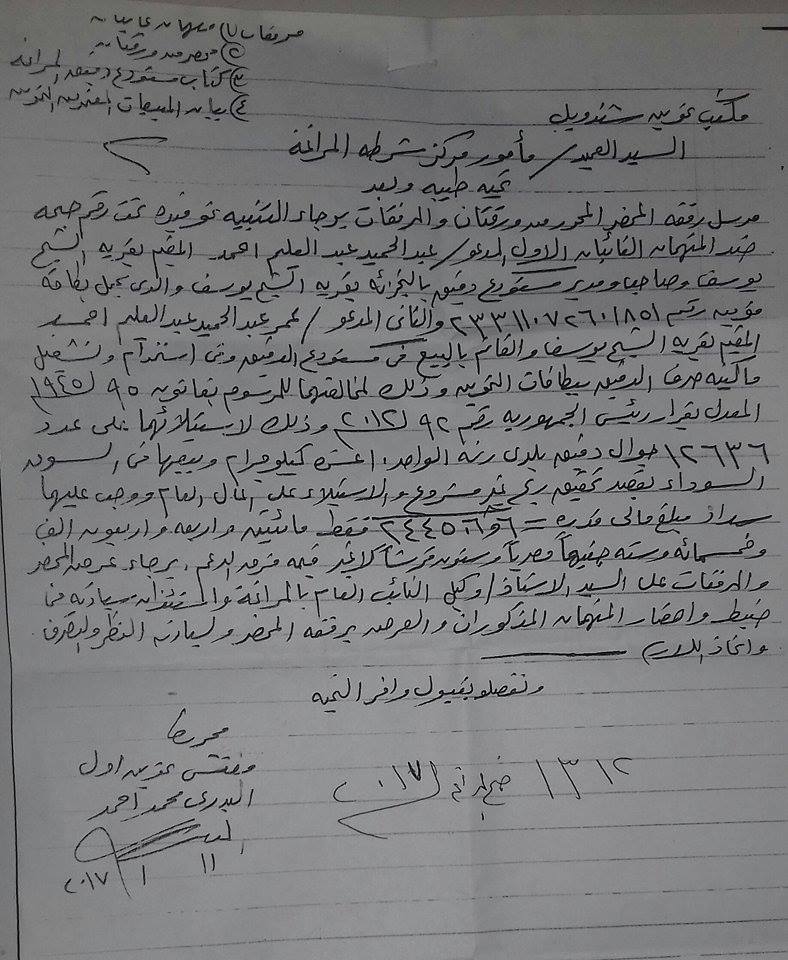 مرفقات ١) متهمان غائبان
٢) محضر من ورقتان
٣) كتاب مستودع دقيق المراغة
٤) بيان المبيعات
مكتب تموين شندويل
السيد العميد / مأمور مركز شرطه المراغة
تحيه طيبه وبعد
مرسل رفقه المحضر المحرر من ورقتان والمرفقات برجاء التنبيه نحو قيده تحت رقم جنحه
ضد المتهمان الغائبان الاول المدعو / عبد الحميد عبد العليم احمد المقيم بقريه الشيخ
يوسف وصاحب ومدير مستودع دقيق بالخزانه بقريه الشيخ يوسف والذى يحمل بطاقه
رقم ٢٣٣١١٠٧٢٦٠١٨٥١ والثانى المدعو / عمر عبد الحميد عبد العليم احمد
المقيم بقريه الشيخ يوسف والقائم بالبيع فى مستودع الدقيق وفى استخدام وتشغيل
ماكينه صرف الدقيق ببطاقات التموين وذلك لمخالفتهما للمرسوم بقانون ٩٥ لـ ١٩٤٥
المعدل بقرار رئيس الجمهوريه رقم ٩٢ لـ ٢٠١٢ وذلك لاستيلائهما على عدد
١٢٦٣٦ جوال دقيق بلدى زنه الواحد ١٠ عشرة كيلو جرام وبيعها فى السوق
السوداء بقصد تحقيق ربح غير مشروع والاستيلاء على المال العام ووجب عليهما
سداد مبلغ مالى قدره = فقط مائتين واربعه واربعون الف
وخمسمائه وسته جنيهاً مصرياً وستون قرشاً لا غير قيمه فرق الدعم . برجاء عرض المحضر
والمرفقات على السيد الاستاذ / وكيل النائب العام بالمراغة واستئذان سيادته فى
ضبط واحضار المتهمان المذكوران والعرض برفقه المحضر ولسيادته النظر والتصرف
واتخاذ اللازم
وتفضلو بقبول وافر التحيه
محررها
مفتش تموين اول
البدرى محمد احمد
١١ / ١ / ٢٠١٧
١٣١٢ جنح المراغة لـ ٢٠١٧